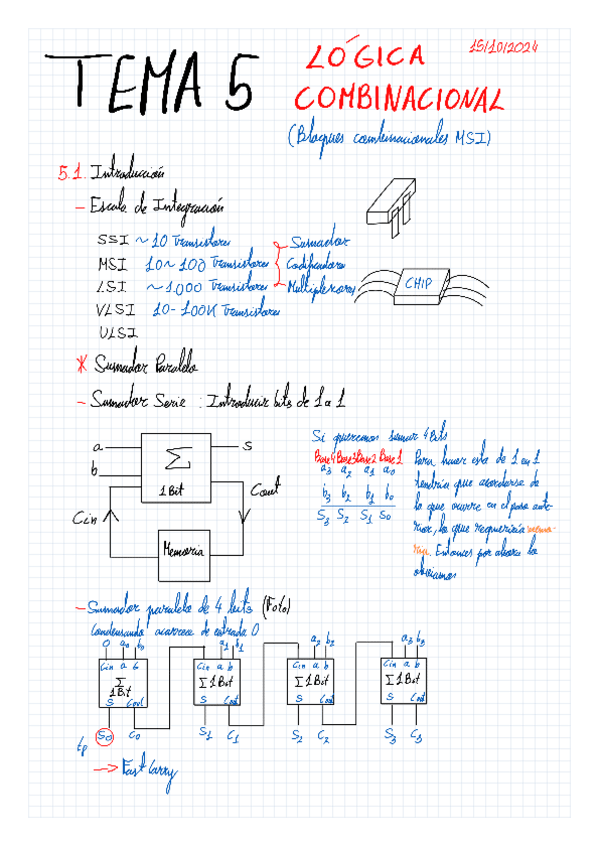 TEMA 5 LÓGICA COMBINACIONAL 15/10/2024
(Bloques combinacionales MSI)
5.1. Introducción
- Escala de Integración
SSI ~ 10 Transistores
MSI 10 ~ 100 Transistores
LSI ~ 1.000 Transistores
VLSI 10 - 100K Transistores
ULSI
Sumador
Codificadores
Multiplexores
CHIP
* Sumador Paralelo
- Sumador Serie : Introducir bits de 1 a 1
a
b
Σ
1 Bit
S
Cin
Cout
Memoria
Si queremos sumar 4 Bits
Base 4 Base 3 Base 2 Base 1
a3 a2 a1 a0
b3 b2 b1 b0
S3 S2 S1 S0
Para hacer esto de 1 en 1
tendría que acordarse de
lo que ocurre en el paso ante-
rior, lo que requeriría memo-
ria. Entonces por ahora lo
obviamos
- Sumador paralelo de 4 bits (Foto)
Condensando acarreo de entrada 0
0 a0 b0
a1 b1
a2 b2
a3 b3
Cin a b
Σ
1 Bit
S Cout
Cin a b
Σ 1 Bit
S Cout
Cin a b
Σ 1 Bit
S Cout
Cin a b
Σ 1 Bit
S Cout
S0 C0
S1 C1
S2 C2
S3 C3
tp
→ Fast Carry